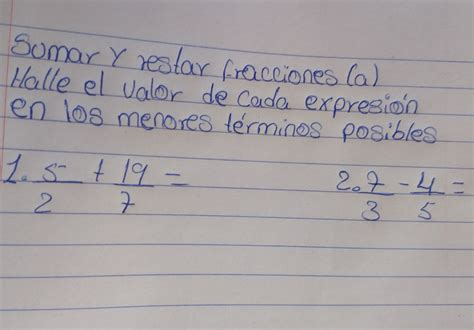 Sumar y restar fracciones (a)
Halle el valor de cada expresión
en los menores términos posibles
1. 5/2 + 19/7 =
2. 7/3 - 4/5 =